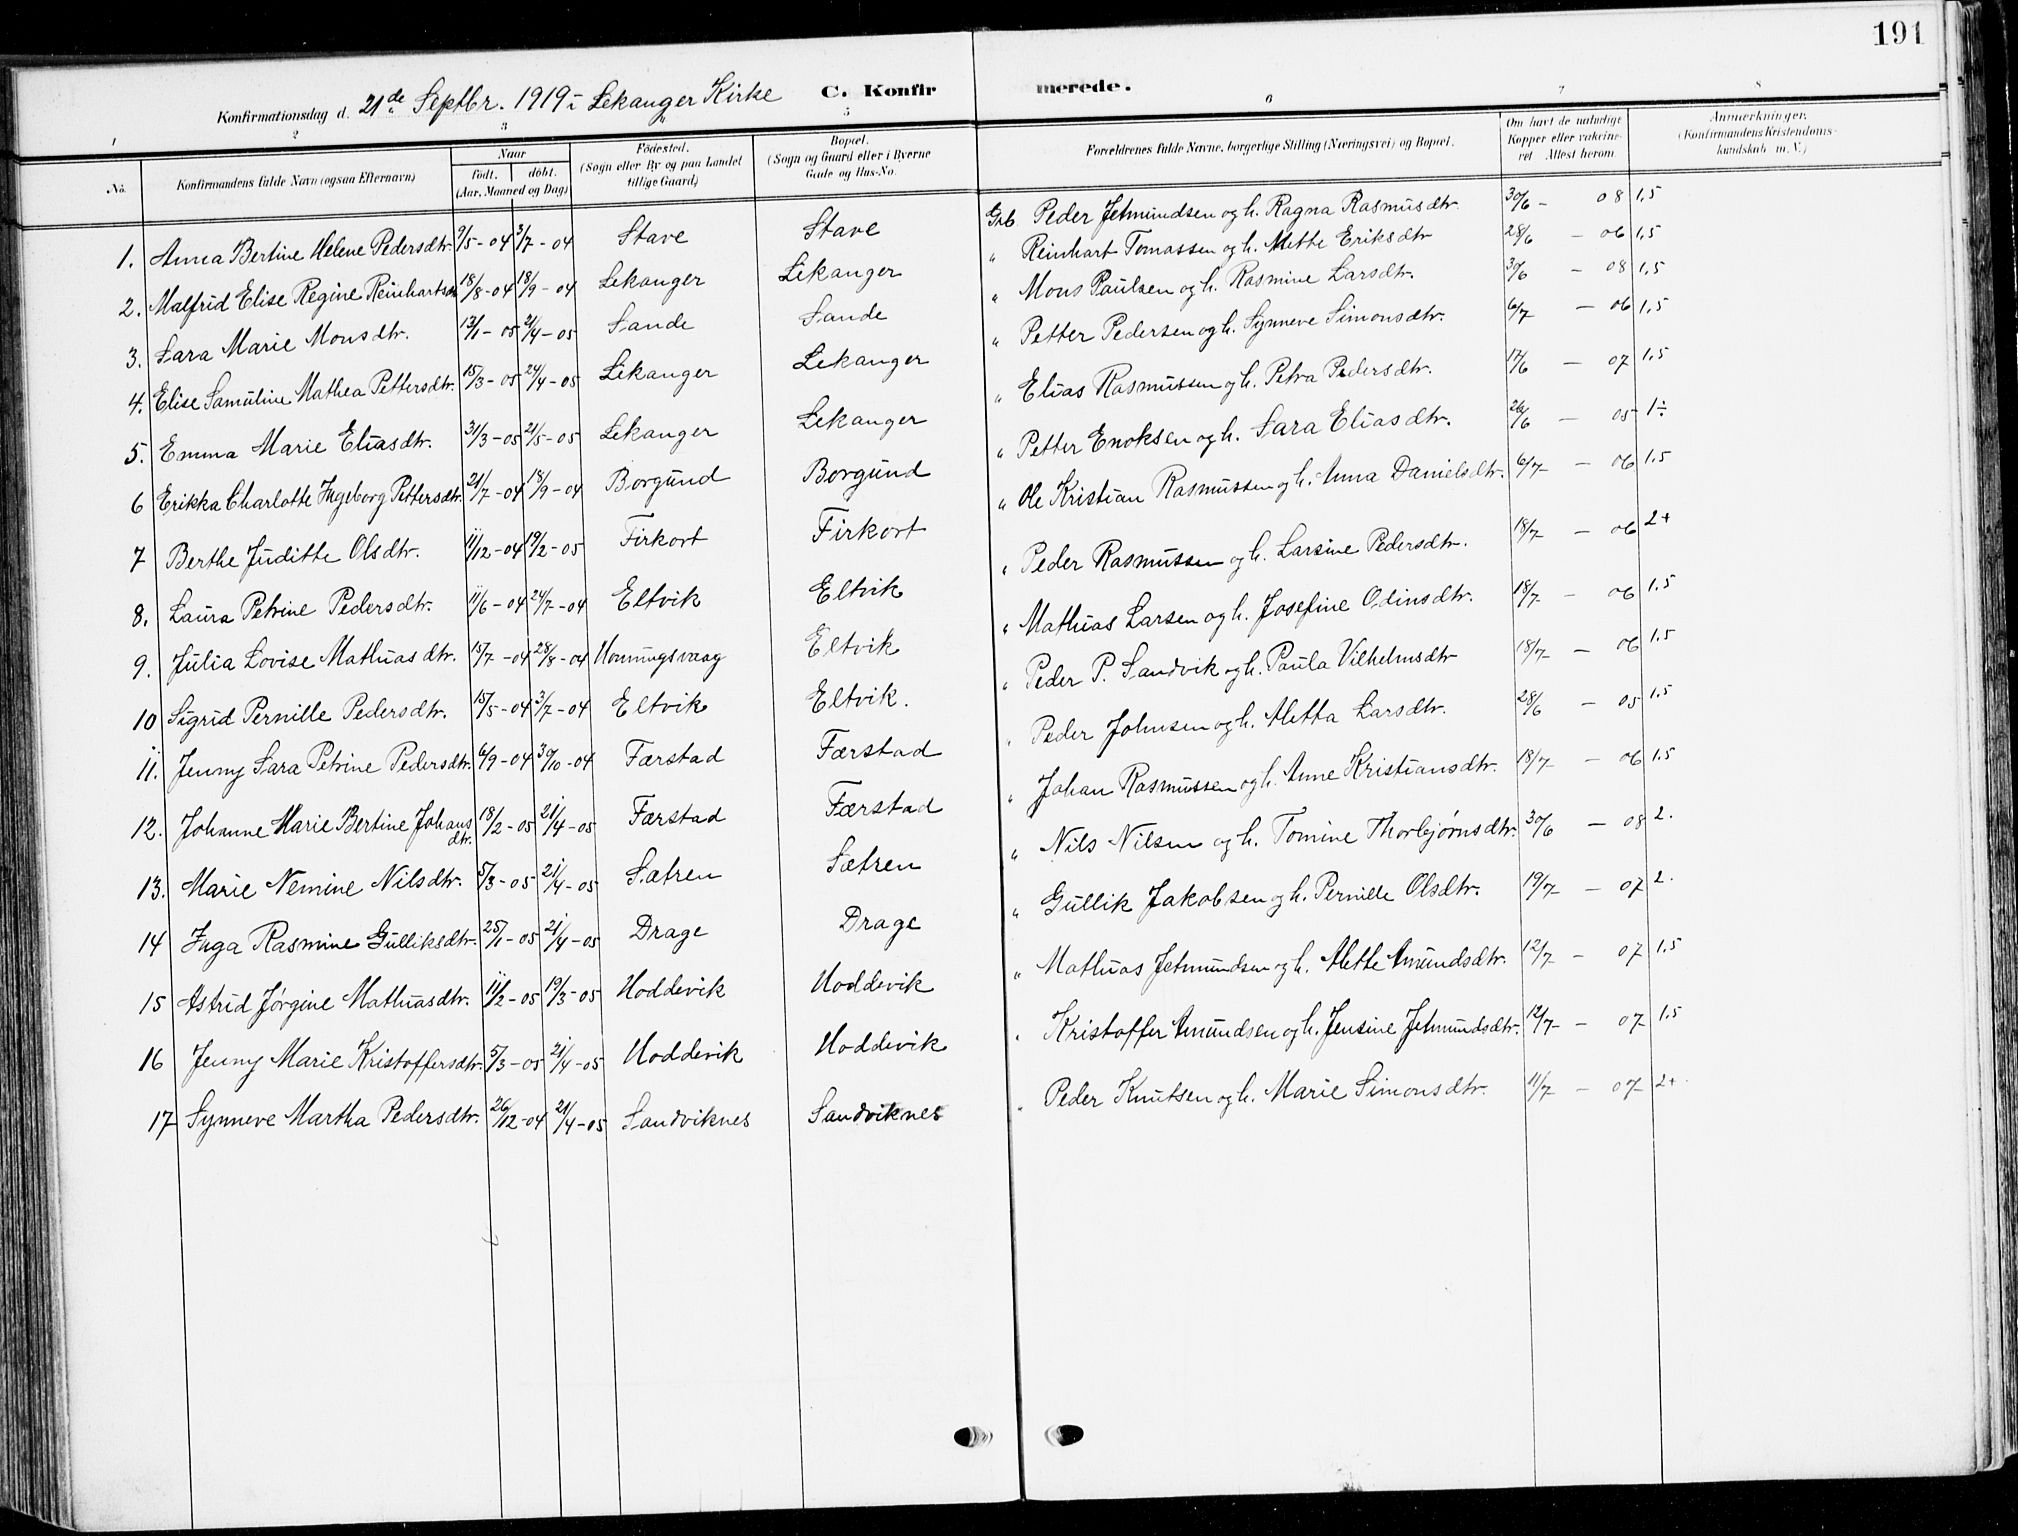 191
Konfirmationsdag d. 21de Septbr. 1919 i Lekanger Kirke C. Konfirmerede.
1 2 3 5 6 7 8
No. Konfirmandens fulde Navn (ogsaa Efternavn) Naar født. døbt. (Aar, Maaned og Dag) Fødested. (Sogn eller By og paa Landet tillige Gaard) Bopæl. (Sogn og Gaard eller i Byerne Gade og Hus-No. Forældrenes fulde Navne, borgerlige Stilling (Næringsvei) og Bopæl. Om havt de naturlige Kopper eller vakcineret. Attest herom. Anmærkninger. (Konfirmandens Kristendomskundskab m. V.)
1. Anna Bertine Helene Pedersdtr. 9/5-04 3/7-04 Stave Stave Grb. Peder Jetmundsen og h. Ragna Rasmusdtr. 30/6 - 08 1,5
2. Malfrid Elise Regine Reinhartsdtr 18/8-04 18/9-04 Lekanger Lekanger " Reinhart Tomassen og h. Mette Eriksdtr 28/6 - 06 1,5
3. Sara Marie Monsdtr. 13/1-05 21/4-05 Sande Sande " Mons Paulsen og h. Rasmine Larsdtr. 30/6 - 08 1,5
4. Elise Samuline Mathea Pettersdtr. 15/3-05 24/4-05 Lekanger Lekanger " Petter Pedersen og h. Synneve Simonsdtr. 6/7 - 06 1,5
5. Emma Marie Eliasdtr. 31/3-05 21/5-05 Lekanger Lekanger " Elias Rasmussen og h. Petra Pedersdtr. 17/6 - 07 1,5
6 Erikka Charlotte Ingeborg Pettersdtr. 21/7-04 18/9-04 Borgund Borgund " Petter Enoksen og h. Sara Eliasdtr. 26/6 - 05 1÷
7 Berthe Juditte Olsdtr. 11/12-04 19/2-05 Firkort Firkort " Ole Kristian Rasmussen og h. Anna Danielsdtr. 6/7 - 06 1,5
8. Laura Petrine Pedersdtr. 11/6-04 24/7-04 Eltvik Eltvik " Peder Rasmussen og h. Larsine Pedersdtr. 18/7 - 06 2+
9. Julia Lovise Mathiasdtr. 15/7-04 28/8-04 Honningsvaag Eltvik " Mathias Larsen og h. Josefine Odinsdtr. 18/7 - 06 1,5
10 Sigrid Pernille Pedersdtr. 15/5-04 3/7-04 Eltvik Eltvik. " Peder P. Sandvik og h. Paula Vilhelmsdtr 18/7 - 06 1,5
11. Jenny Sara Petrine Pedersdtr. 6/9-04 30/10-04 Færstad Færstad " Peder Johnsen og h. Metta Larsdtr. 28/6 - 05 1,5
12. Johanne Marie Bertine Johansdtr. 18/2-05 21/4-05 Færstad Færstad " Johan Rasmussen og h. Anne Kristiansdtr. 18/7 - 06 1,5
13. Marie Nemine Nilsdtr. 5/3-05 21/4-05 Sætren Sætren " Nils Nilsen og h. Tomine Thorbjørnsdtr. 30/6 - 08 2.
14 Inga Rasmine Gulliksdtr. 25/1-05 21/4-05 Drage Drage " Gullik Jakobsen og h. Pernille Olsdtr. 19/7 - 07 2.
15 Astrid Jørgine Mathiasdtr. 11/2-05 19/3-05 Hoddevik Hoddevik " Mathias Jetmundsen og h. Mette Amundsdtr. 12/7 - 07 1,5
16 Jenny Marie Kristoffersdtr. 5/3-05 21/4-05 Hoddevik Hoddevik " Kristoffer Amundsen og h. Jensine Jetmundsdtr. 12/7 - 07 1,5
17 Synneve Martha Pedersdtr. 26/12-04 21/4-05 Sandviknes Sandviknes " Peder Knutsen og h. Marie Simonsdtr. 11/7 - 07 2+